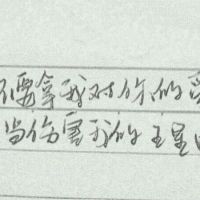 要拿我对你的
当伤害我的